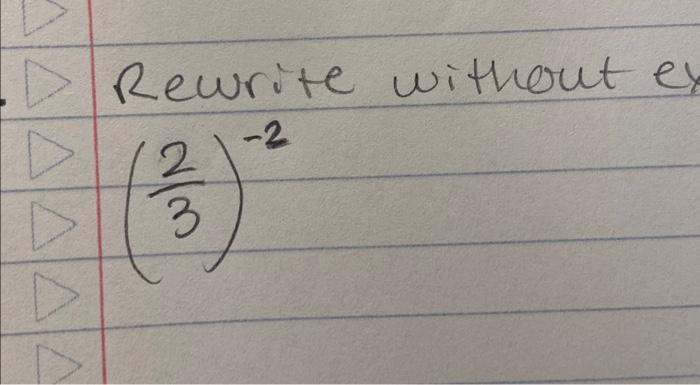 Rewrite without
(2/3)^-2